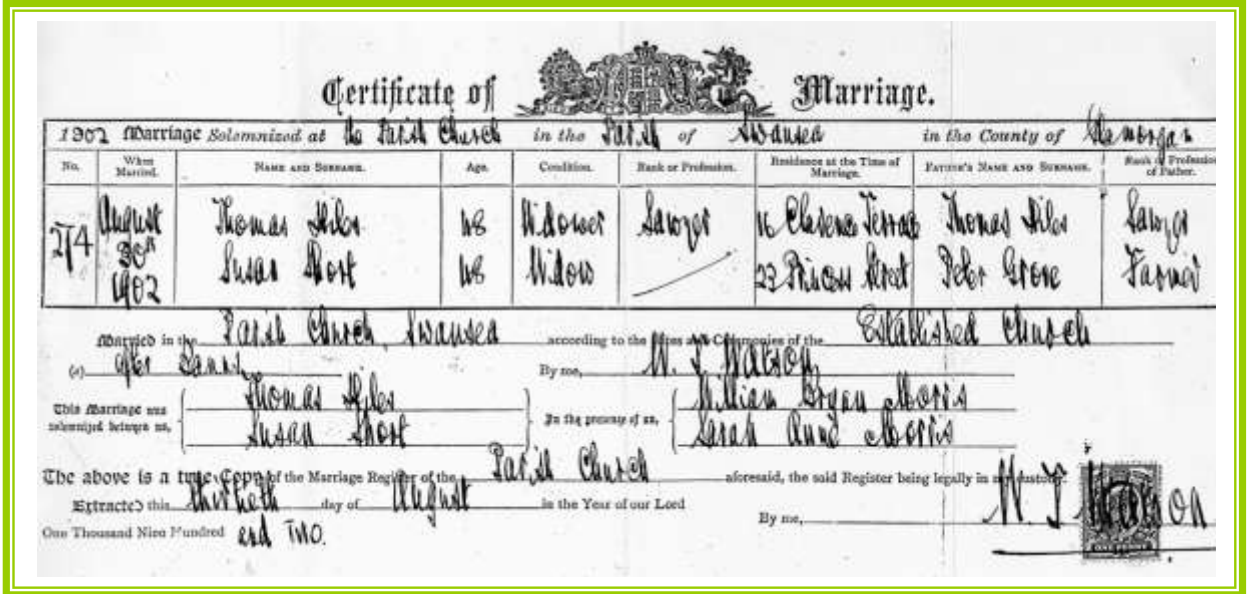 Certificate of Marriage.
1902 Marriage Solemnized at the Parish Church in the Parish of Swansea in the County of Glamorgan
No. When Married. Name and Surname. Age. Condition. Rank or Profession. Residence at the Time of Marriage. Father's Name and Surname. Rank or Profession of Father.
274 August 30th 1902 Thomas Hiles 48 Widower Sawyer 16 Clarence Terrace Thomas Hiles Sawyer
Susan Short 48 Widow 23 Princess Street Peter Grove Farmer
Married in the Parish Church, Swansea according to the Rites and Ceremonies of the Established Church
(a) after Banns, By me, W. T. Watson
This Marriage was solemnized between us, Thomas Hiles Susan Short In the presence of us, William Bryan Morris Sarah Anne Morris
The above is a true Copy of the Marriage Register of the Parish Church aforesaid, the said Register being legally in my custody.
Extracted this thirtieth day of August in the Year of our Lord
One Thousand Nine Hundred and Two. By me, W. T. Watson